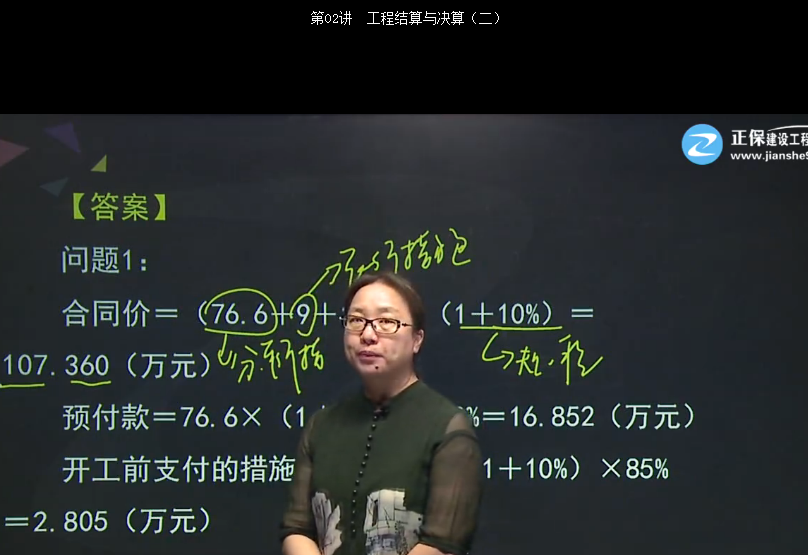 第02讲 工程结算与决算（二）
正保建设工程
www.jianshe9
【答案】
问题1：
合同价＝（76.6＋9＋ （1＋10%）＝
107.360（万元）
预付款＝76.6×（1 %＝16.852（万元）
开工前支付的措施 1＋10%）×85%
＝2.805（万元）